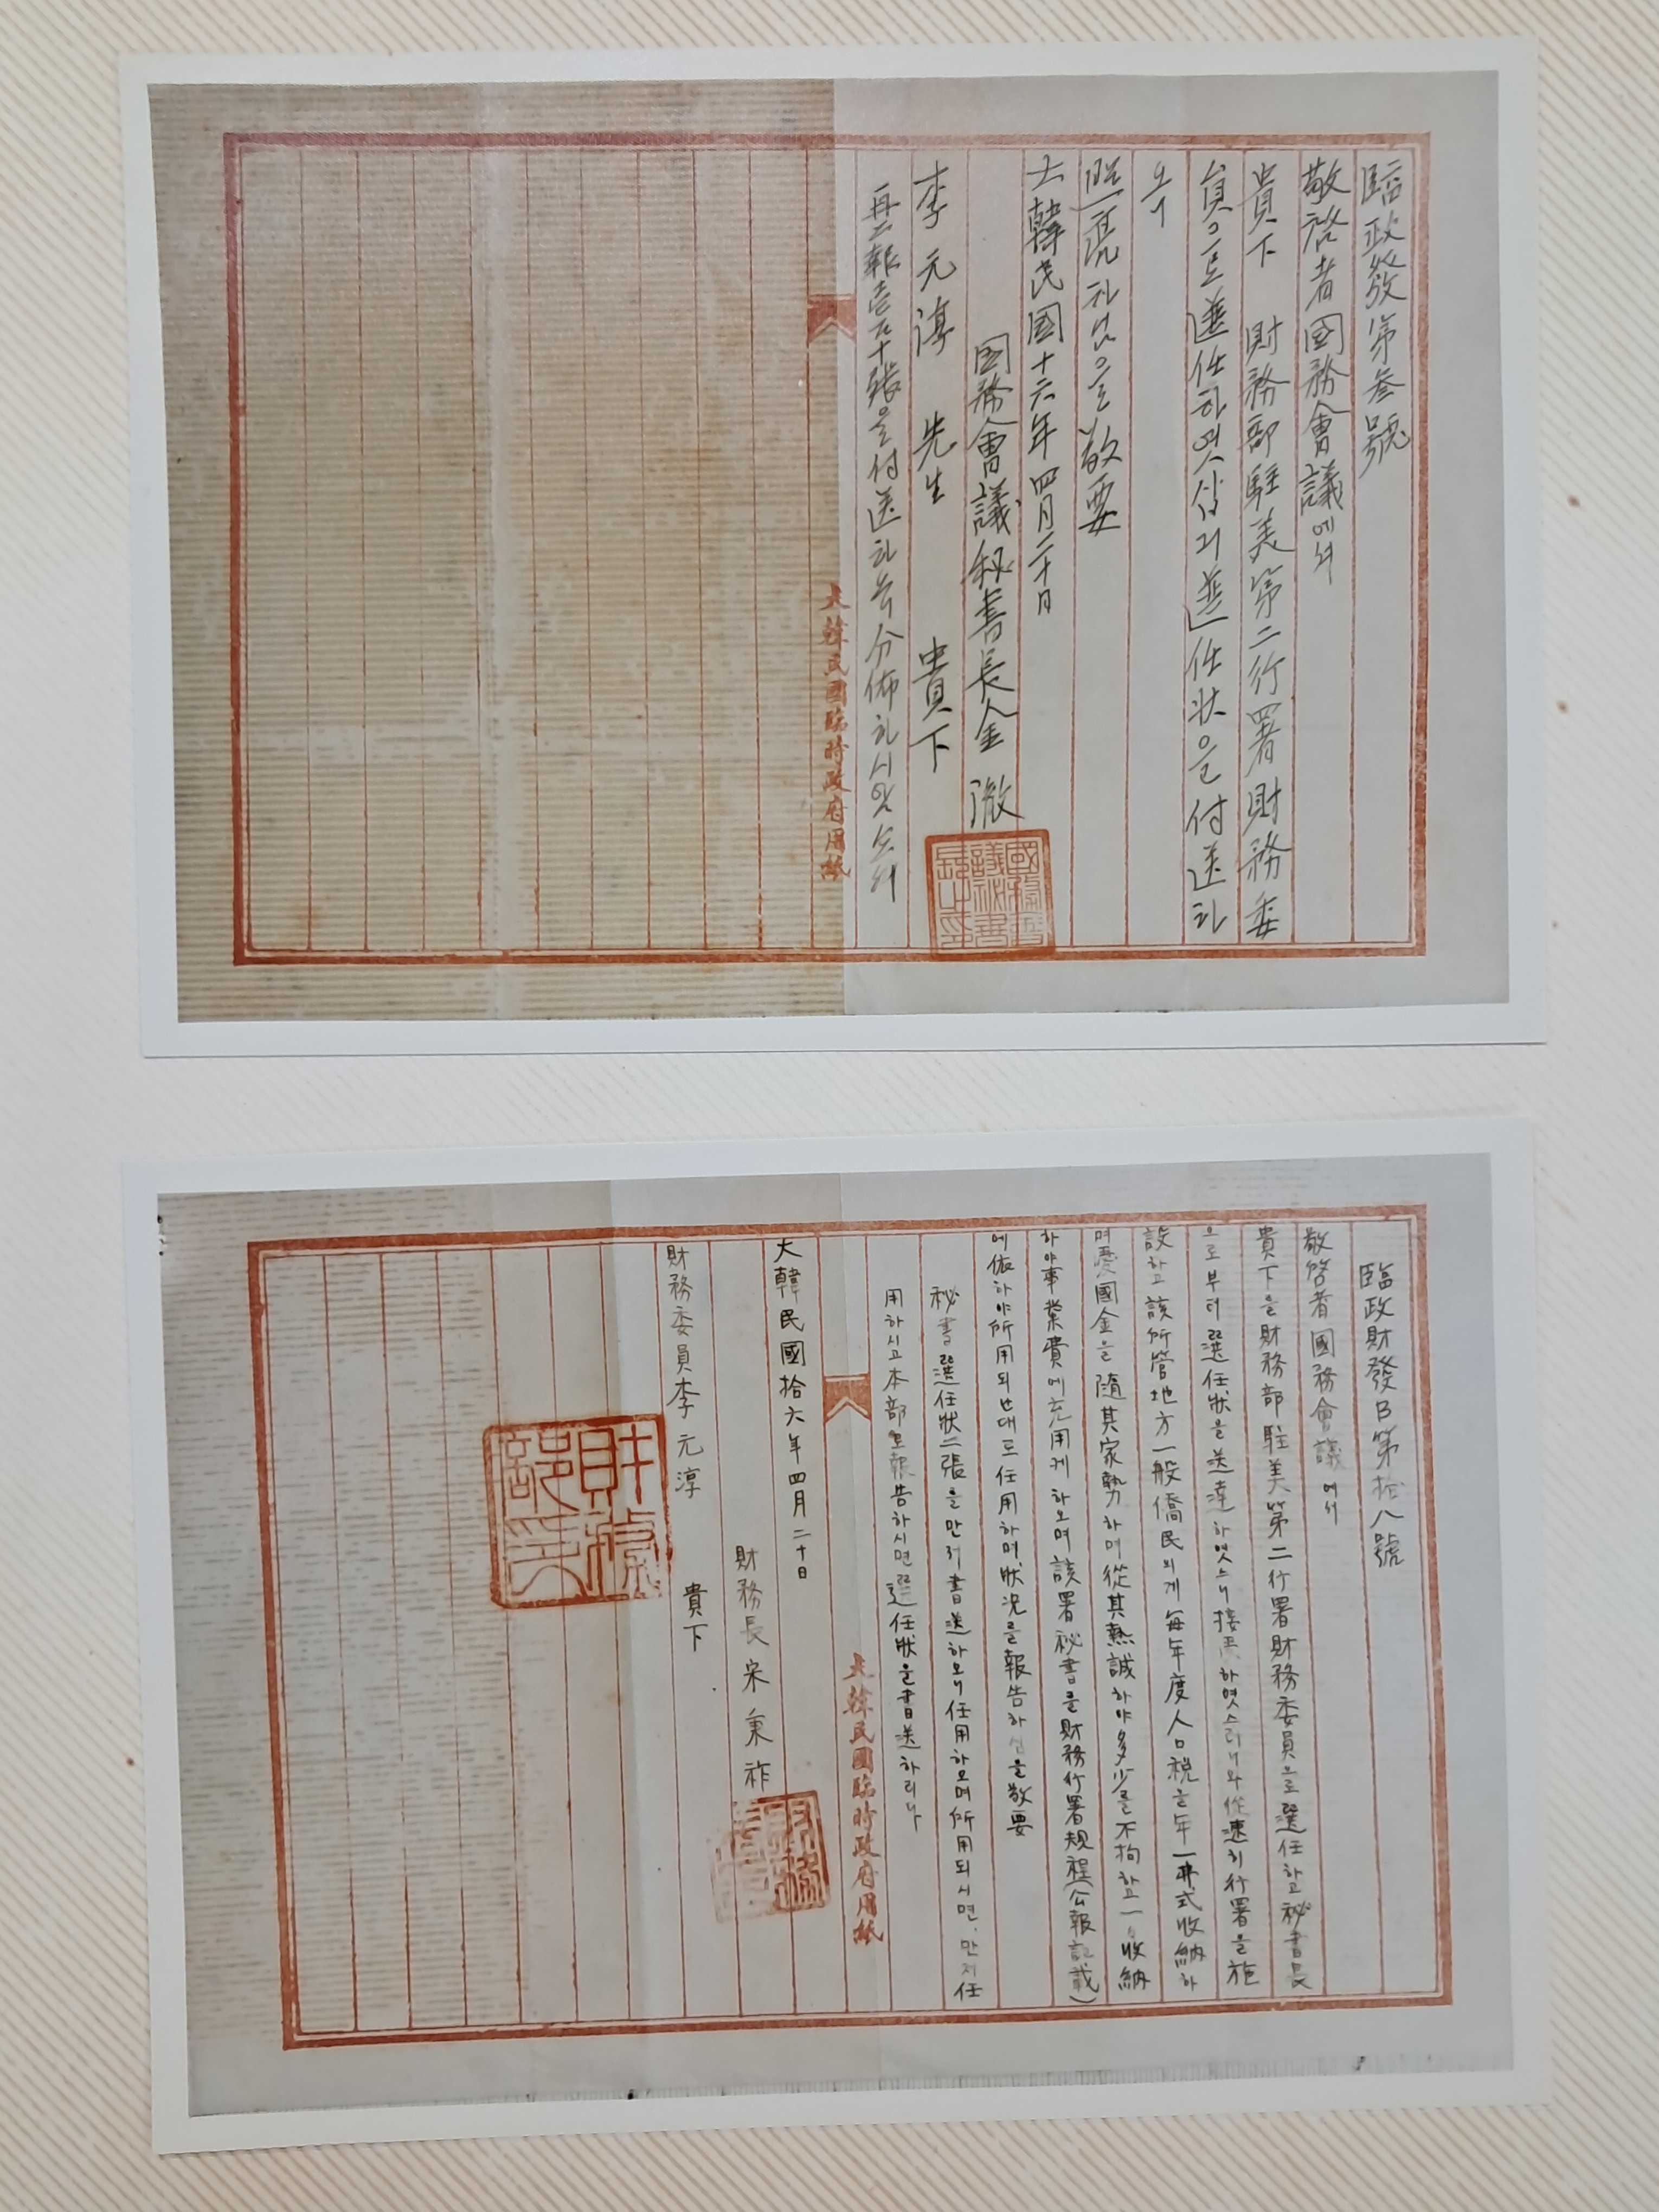 臨政發第叁號
敬啓者國務會議에서
貴下 財務部駐美第二行署財務委
員으로選任하엿삽기選任狀을付送하
오니
照亮하심을敬要
大韓民國十六年四月二十日
國務會議秘書長金澈
李元淳 先生 貴下
再 報告 五十張을付送하 分佈하시
大韓民國臨時政府用紙
臨政財發B第拾八號
敬啓者國務會議에서
貴下을財務部駐美第二行署財務委員으로選任하고秘書長
으로부터選任狀을送達하엿스니接 하엿스려니와從速히行署을施
設하고該所管地方一般僑民의게每年度人口稅을年一 式收納하
며愛國金을隨其家勢하며從其熱誠하야多少을不拘하고一 收納
하야事業費에充用케하오며該署秘書을財務行署規程(公報記載)
에依하야所用되 대로任用하며狀况을報告하심을敬要
秘書選任狀二張을만저書送하오니任用하오며所用되시면、만저任
用하시고本部로報告하시면選任狀을書送하리다
大韓民國臨時政府用紙
大韓民國拾六年四月二十日
財務長宋秉祚
財務委員李元淳 貴下
財務部印